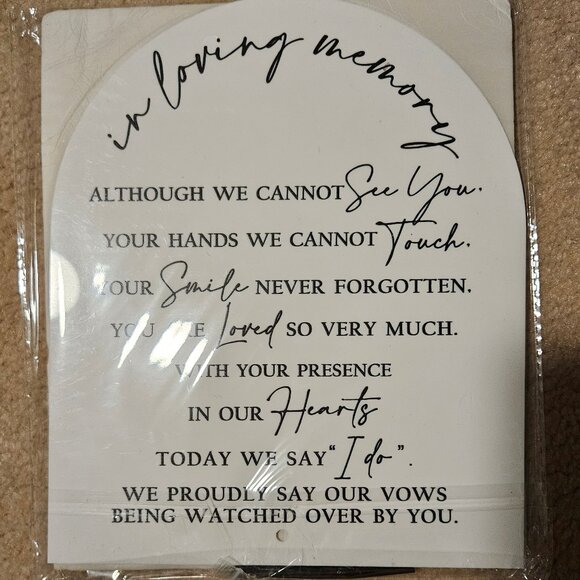 in loving memory
ALTHOUGH WE CANNOT See You.
YOUR HANDS WE CANNOT Touch.
YOUR Smile NEVER FORGOTTEN.
YOU ARE Loved SO VERY MUCH.
WITH YOUR PRESENCE
IN OUR Hearts
TODAY WE SAY "I do".
WE PROUDLY SAY OUR VOWS
BEING WATCHED OVER BY YOU.